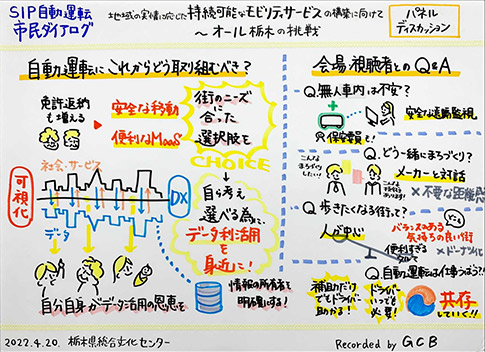 SIP自動運転
市民ダイアログ
地域の実情に応じた持続可能なモビリティサービスの構築に向けて
～オール栃木の挑戦
パネル
ディスカッション
自動運転にこれからどう取り組むべき？
免許返納
も増える
安全な移動
便利なMaaS
街のニーズ
に合った
選択肢を
CHOICE
自ら考え
選べる為に、
データ利活用
を
身近に！
社会・サービス
可視化
DX
データ
自分自身がデータ活用の恩恵を
情報の所有者を
明確にする！
会場・視聴者とのQ&A
Q.無人車内は不安？
安全な遠隔監視
保安員も！
Q.どう一緒にまちづくり？
こんな
まちづくり
したい！
こんな
あります！
メーカーと対話
×不要な距離感
Q.歩きたくなる街って？
人が中心
VS
便利すぎる
クルマ
気持ちの良い街
×ドーナツ化
Q.自動運転は仕事うばう？！
補助だけ
でもドライバー
助かる！
ドライバー
いつでも
必要！
共存
していく！！
2022.4.20. 栃木県総合文化センター
Recorded by GCB